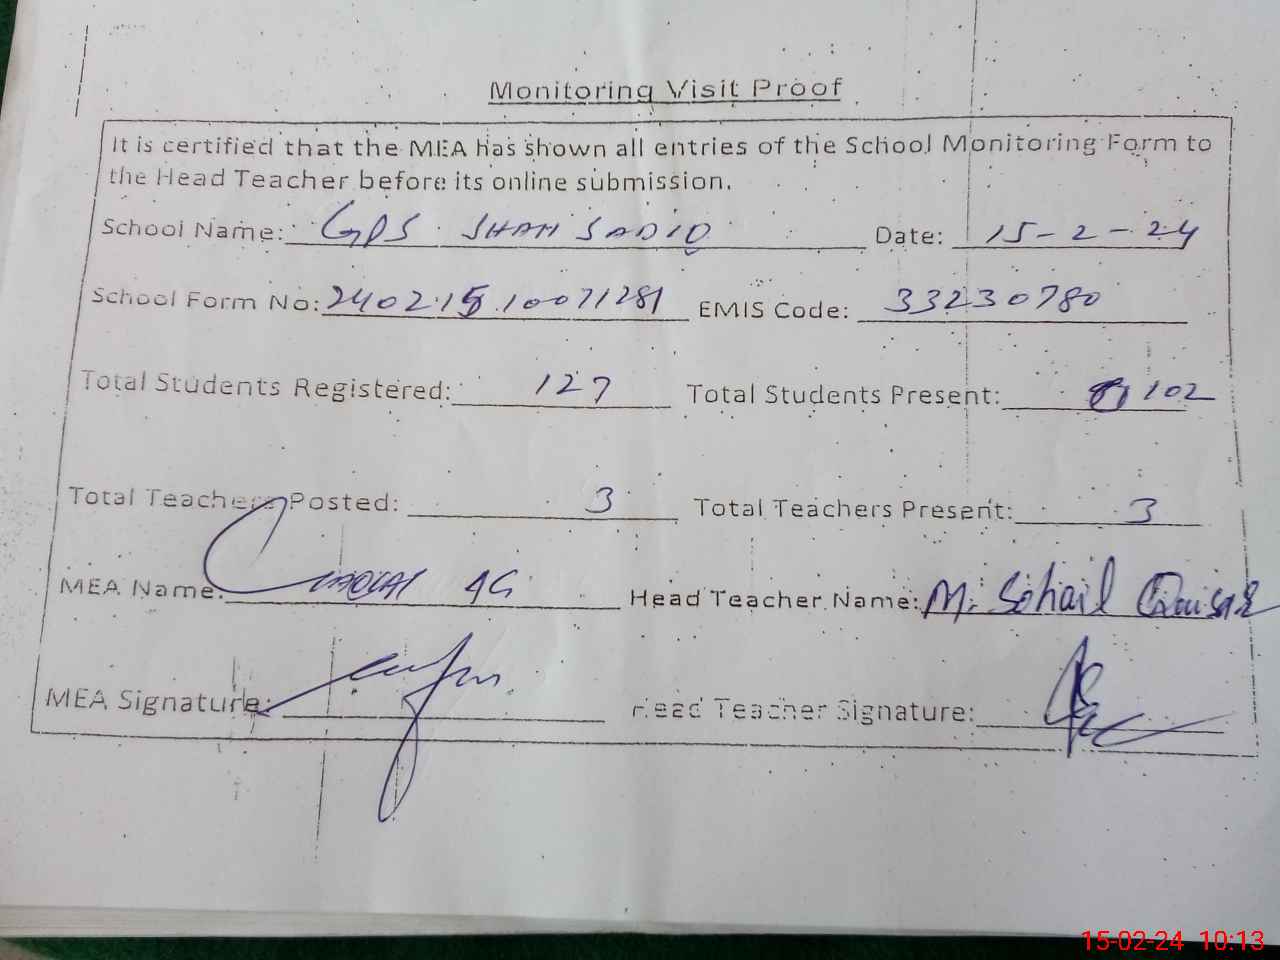 Monitoring Visit Proof
It is certified that the MEA has shown all entries of the School Monitoring Form to
the Head Teacher before its online submission.
School Name: GPS SHAH SADIQ Date: 15-2-24
School Form No: 24021510071281 EMIS Code: 33230780
Total Students Registered: 127 Total Students Present: 102
Total Teachers Posted: 3 Total Teachers Present: 3
MEA Name: Head Teacher Name: M. Sohail
MEA Signature: Head Teacher Signature:
15-02-24 10:13